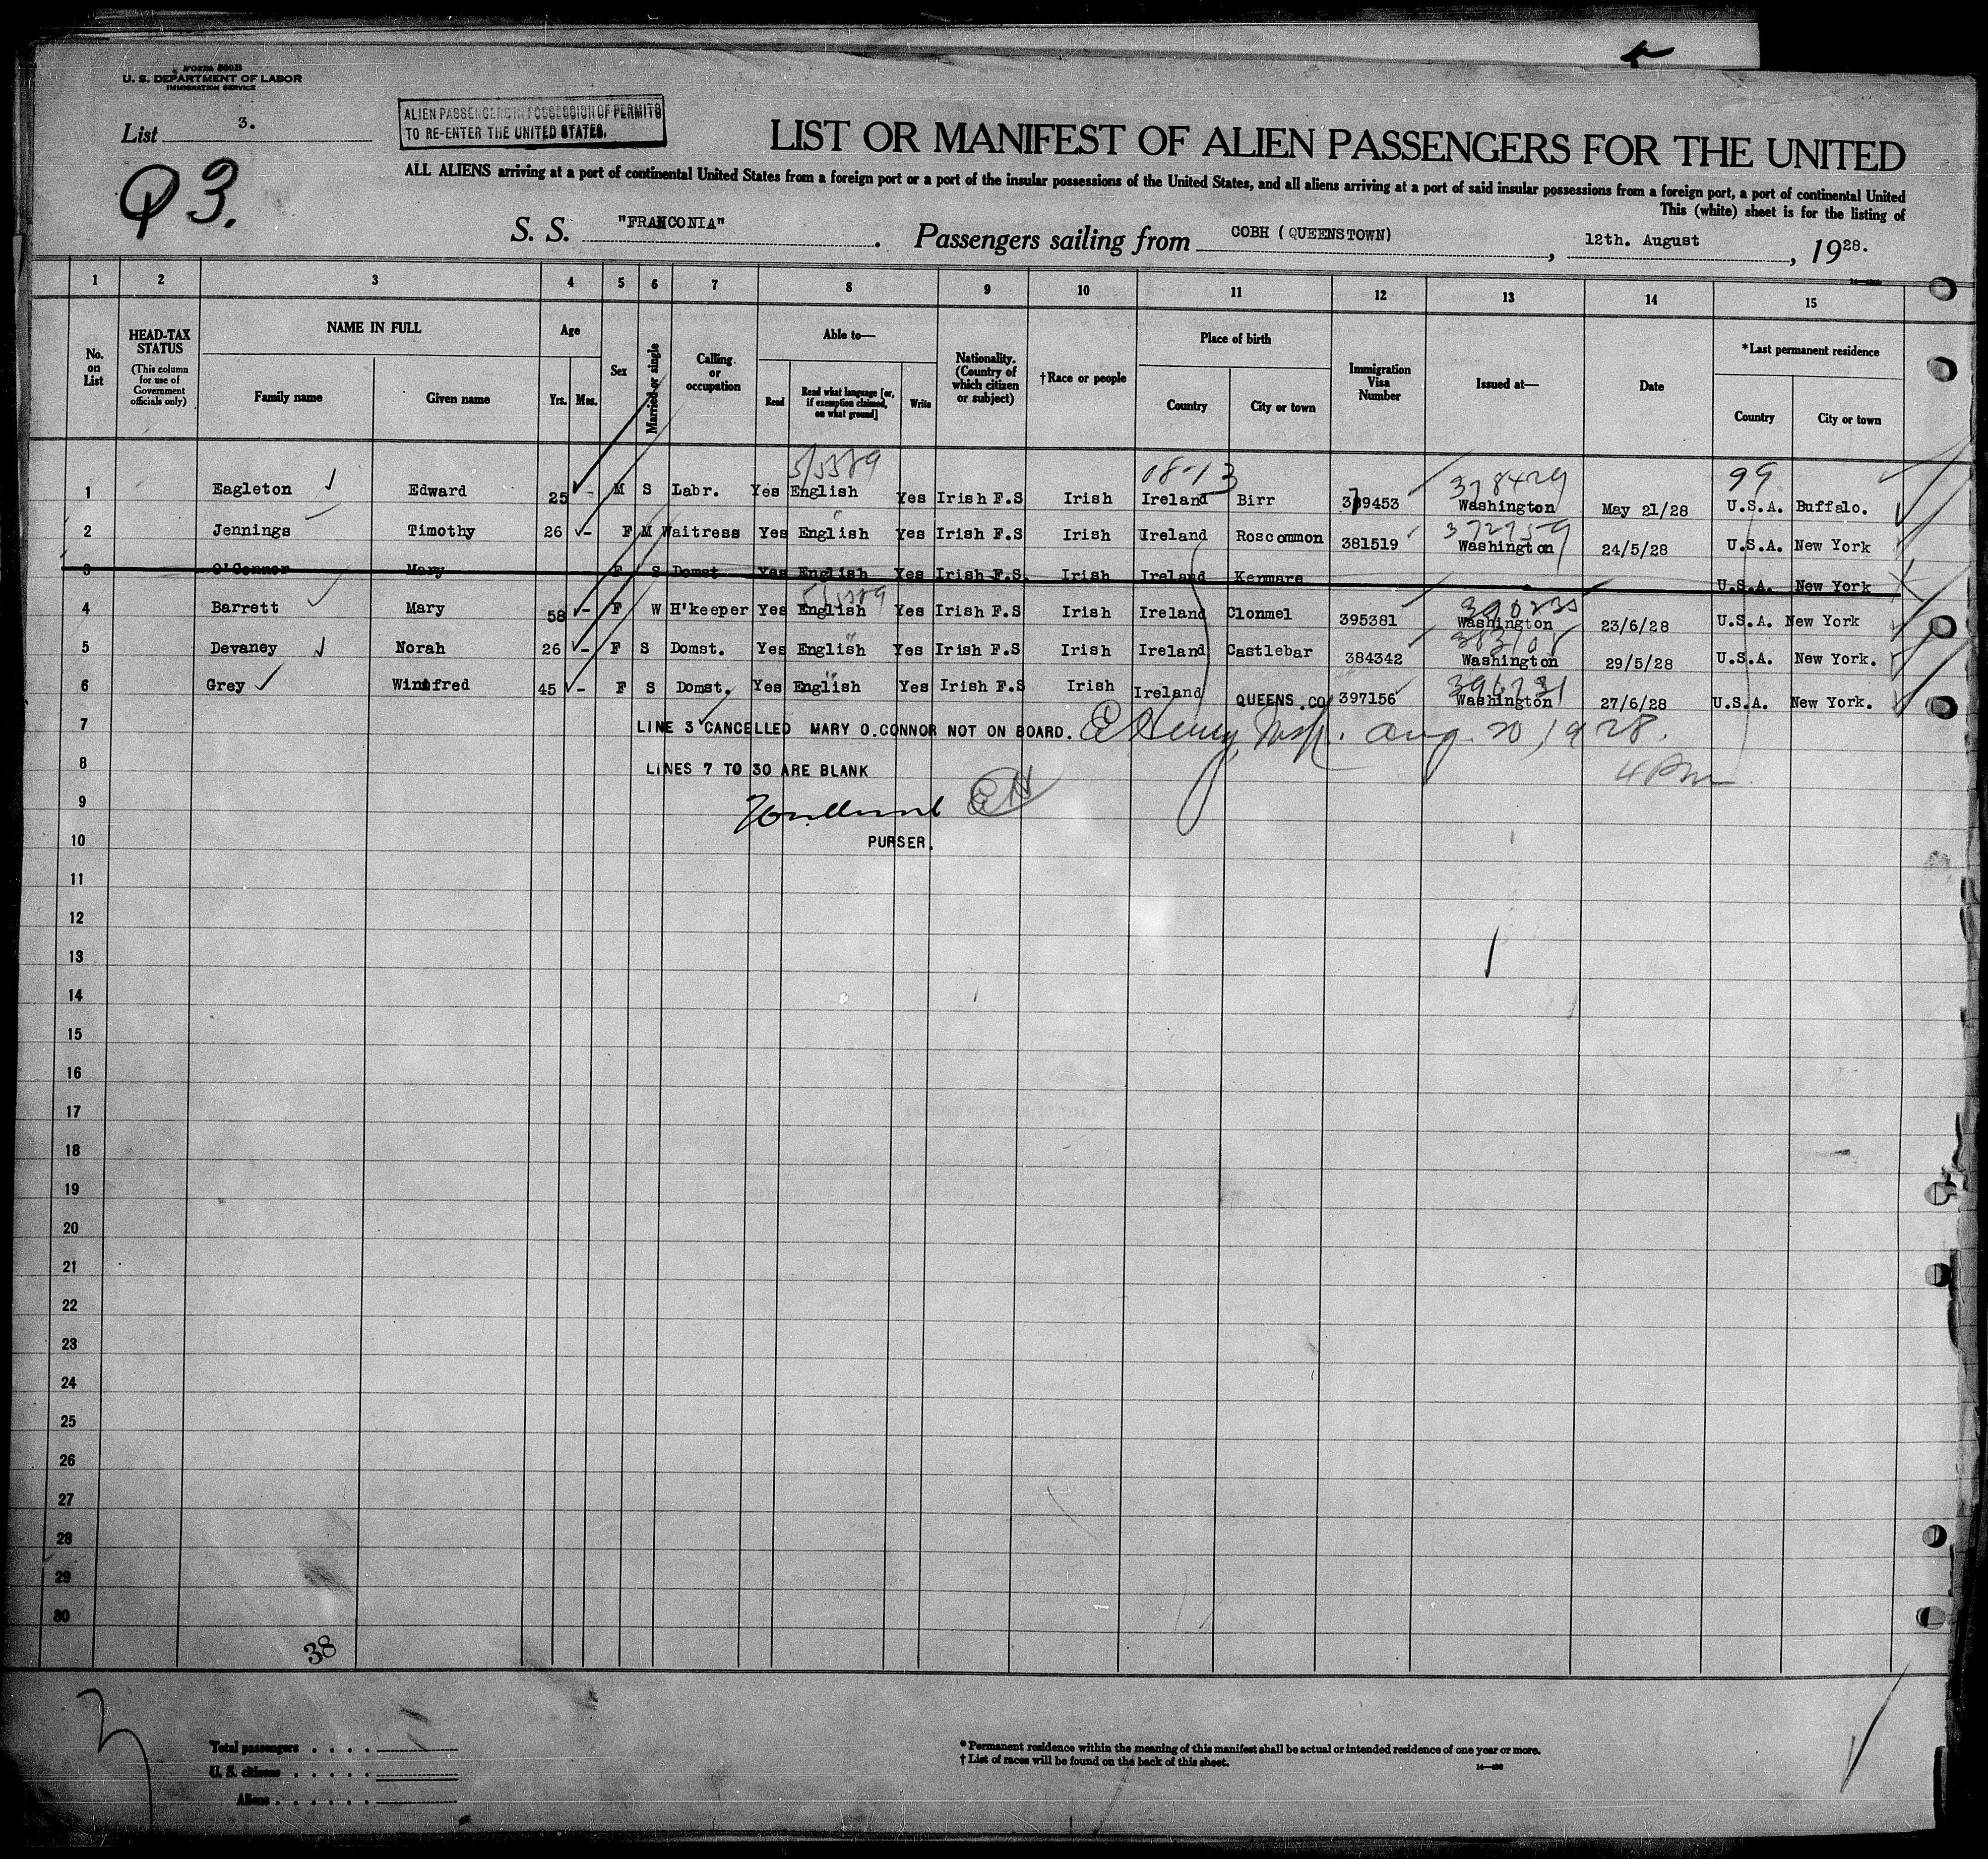 Form 500B
U. S. DEPARTMENT OF LABOR
IMMIGRATION SERVICE
List 3.
ALIEN PASSENGERS IN POSSESSION OF PERMITS
TO RE-ENTER THE UNITED STATES.
Q 3.
LIST OR MANIFEST OF ALIEN PASSENGERS FOR THE UNITED
ALL ALIENS arriving at a port of continental United States from a foreign port or a port of the insular possessions of the United States, and all aliens arriving at a port of said insular possessions from a foreign port, a port of continental United
This (white) sheet is for the listing of
S. S. "FRANCONIA". Passengers sailing from COBH (QUEENSTOWN), 12th. August, 1928.
1 2 3 4 5 6 7 8 9 10 11 12 13 14 15
No. on List
HEAD-TAX STATUS
(This column for use of Government officials only)
NAME IN FULL
Family name Given name
Age
Yrs. Mos.
Sex
Married or single
Calling or occupation
Able to—
Read Read what language [or, if exemption claimed, on what ground] Write
Nationality. (Country of which citizen or subject)
†Race or people
Place of birth
Country City or town
Immigration Visa Number
Issued at—
Date
*Last permanent residence
Country City or town
5/5389 08-13 378429 99
1 Eagleton Edward 25 - M S Labr. Yes English Yes Irish F.S Irish Ireland Birr 379453 Washington May 21/28 U.S.A. Buffalo.
372759
2 Jennings Timothy 26 - F M Waitress Yes English Yes Irish F.S Irish Ireland Roscommon 381519 Washington 24/5/28 U.S.A. New York
3 O'Connor Mary F S Domst Yes English Yes Irish F.S. Irish Ireland Kenmare U.S.A. New York
5/5389
4 Barrett Mary 58 - F W H'keeper Yes English Yes Irish F.S Irish Ireland Clonmel 395381 Washington 23/6/28 U.S.A. New York
5 Devaney Norah 26 - F S Domst. Yes English Yes Irish F.S Irish Ireland Castlebar 384342 Washington 29/5/28 U.S.A. New York.
6 Grey Winifred 45 - F S Domst. Yes English Yes Irish F.S Irish Ireland QUEENS.CO 397156 Washington 27/6/28 U.S.A. New York.
7 LINE 3 CANCELLED MARY O.CONNOR NOT ON BOARD. E Henry Insp. Aug. 20, 1928.
4 Pm
8 LINES 7 TO 30 ARE BLANK
9 EH
10 PURSER.
11
12
13
14
15
16
17
18
19
20
21
22
23
24
25
26
27
28
29
30
38
Total passengers . . . .
U. S. citizens . . . . .
Aliens . . . . . .
* Permanent residence within the meaning of this manifest shall be actual or intended residence of one year or more.
† List of races will be found on the back of this sheet.